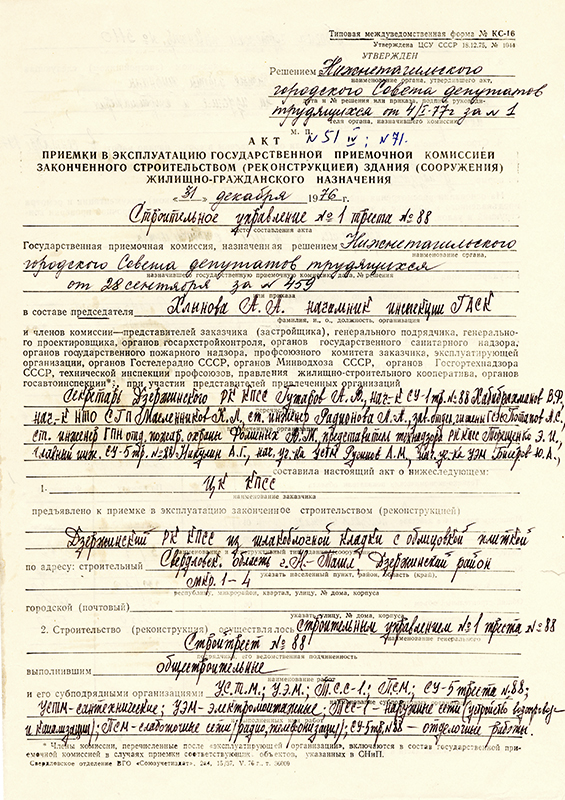 Типовая междуведомственная форма № КС-16
Утверждена ЦСУ СССР 18.12.75, № 1044
УТВЕРЖДЕН
Решением Нижнетагильского
наименование органа, утвердившего акт,
городского Совета депутатов
дата и № решения или приказа, подпись руководи-
трудящихся от 4/I-77г за № 1
теля органа, назначившего комиссию
М. П.
АКТ №51 IV; №71.
ПРИЕМКИ В ЭКСПЛУАТАЦИЮ ГОСУДАРСТВЕННОЙ ПРИЕМОЧНОЙ КОМИССИЕЙ
ЗАКОНЧЕННОГО СТРОИТЕЛЬСТВОМ (РЕКОНСТРУКЦИЕЙ) ЗДАНИЯ (СООРУЖЕНИЯ)
ЖИЛИЩНО-ГРАЖДАНСКОГО НАЗНАЧЕНИЯ
«31» декабря 1976 г.
Строительное управление №1 треста №88
место составления акта
Государственная приемочная комиссия, назначенная решением Нижнетагильского
наименование органа,
городского Совета депутатов трудящихся
назначившего государственную приемочную комиссию, дата, № решения
от 28 сентября за № 459
или приказа
в составе председателя Хлынова А. А. начальник инспекции ГАСК
фамилия, и., о., должность, организация
и членов комиссии—представителей заказчика (застройщика), генерального подрядчика, генерально-
го проектировщика, органов госархстройконтроля, органов государственного санитарного надзора,
органов государственного пожарного надзора, профсоюзного комитета заказчика, эксплуатирующей
организации, органов Гостелерадио СССР, органов Минводхоза СССР, органов Госгортехнадзора
СССР, технической инспекции профсоюзов, правления жилищно-строительного кооператива, органов
госавтоинспекции*; при участии представителей привлеченных организаций
Секретарь Дзержинского РК КПСС А. В., нач-к СУ-1 тр. №88 В.Ф.
нач-к НТО СГП Масленников К.Л., ст. инженер Радионова Л.А., зав. отдел. А.С.,
ст. инженер ГПН отд. пожар. охраны Фоминых Ю.М, представитель технадзора РК КПСС Терещенко Э. И.,
главный инж. СУ-5 тр. №88 Никулин А.Г., нач. уч-ка УСТМ А.М., нач. уч-ка УЭМ Ю.А.,
составила настоящий акт о нижеследующем:
1. ЦК КПСС
наименование заказчика
предъявлено к приемке в эксплуатацию законченное строительством (реконструкцией)
Дзержинский РК КПСС из шлакоблочной кладки с облицовкой плиткой
по адресу: строительный Свердловск. область г. Н-Тагил, Дзержинский район
указать населенный пункт, район, область (край),
мкр. 1-4
республику, микрорайон, квартал, улицу, № дома, корпуса
городской (почтовый)
указать улицу, № дома, корпуса
2. Строительство (реконструкция) осуществлялось строительным управлением №1 треста №88
наименование генерального
Стройтрест №88
подрядчика, его ведомственная подчиненность
выполнившим общестроительные
наименование работ
и его субподрядными организациями УСТМ; УЭМ; ТСС-1; ПСМ; СУ-5 треста №88;
УСТМ-сантехнические; УЭМ-электромонтажные; ТСС-1 наружные сети (устройство водопровода
выполненных ими работ
и канализации); ПСМ-слаботочные сети (радио, телефонизация); СУ-5 тр. №88 — отделочные работы.
* Члены комиссии, перечисленные после «эксплуатирующей организации», включаются в состав государственной при-
емочной комиссией в случаях приемки соответствующих объектов, указанных в СНиП.
Свердловское отделение ВГО «Союзучетиздат», V. 76 г., т. 50000